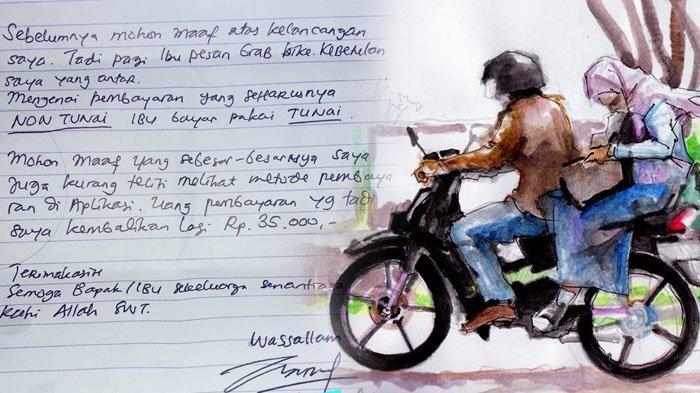 Sebelumnya mohon maaf atas kelancangan
saya. Tadi pagi Ibu pesan Grab bike. Kebetulan
saya yang antar.
Mengenai pembayaran yang seharusnya
NON TUNAI IBU bayar pakai TUNAI.
Mohon maaf yang sebesar-besarnya saya
juga kurang teliti melihat metode pembaya
ran di Aplikasi. Uang pembayaran yg tadi
saya kembalikan lagi Rp. 35.000,-
Terimakasih
Semoga Bapak/IBU sekeluarga senantiasa
Allah SWT.
Wassallam